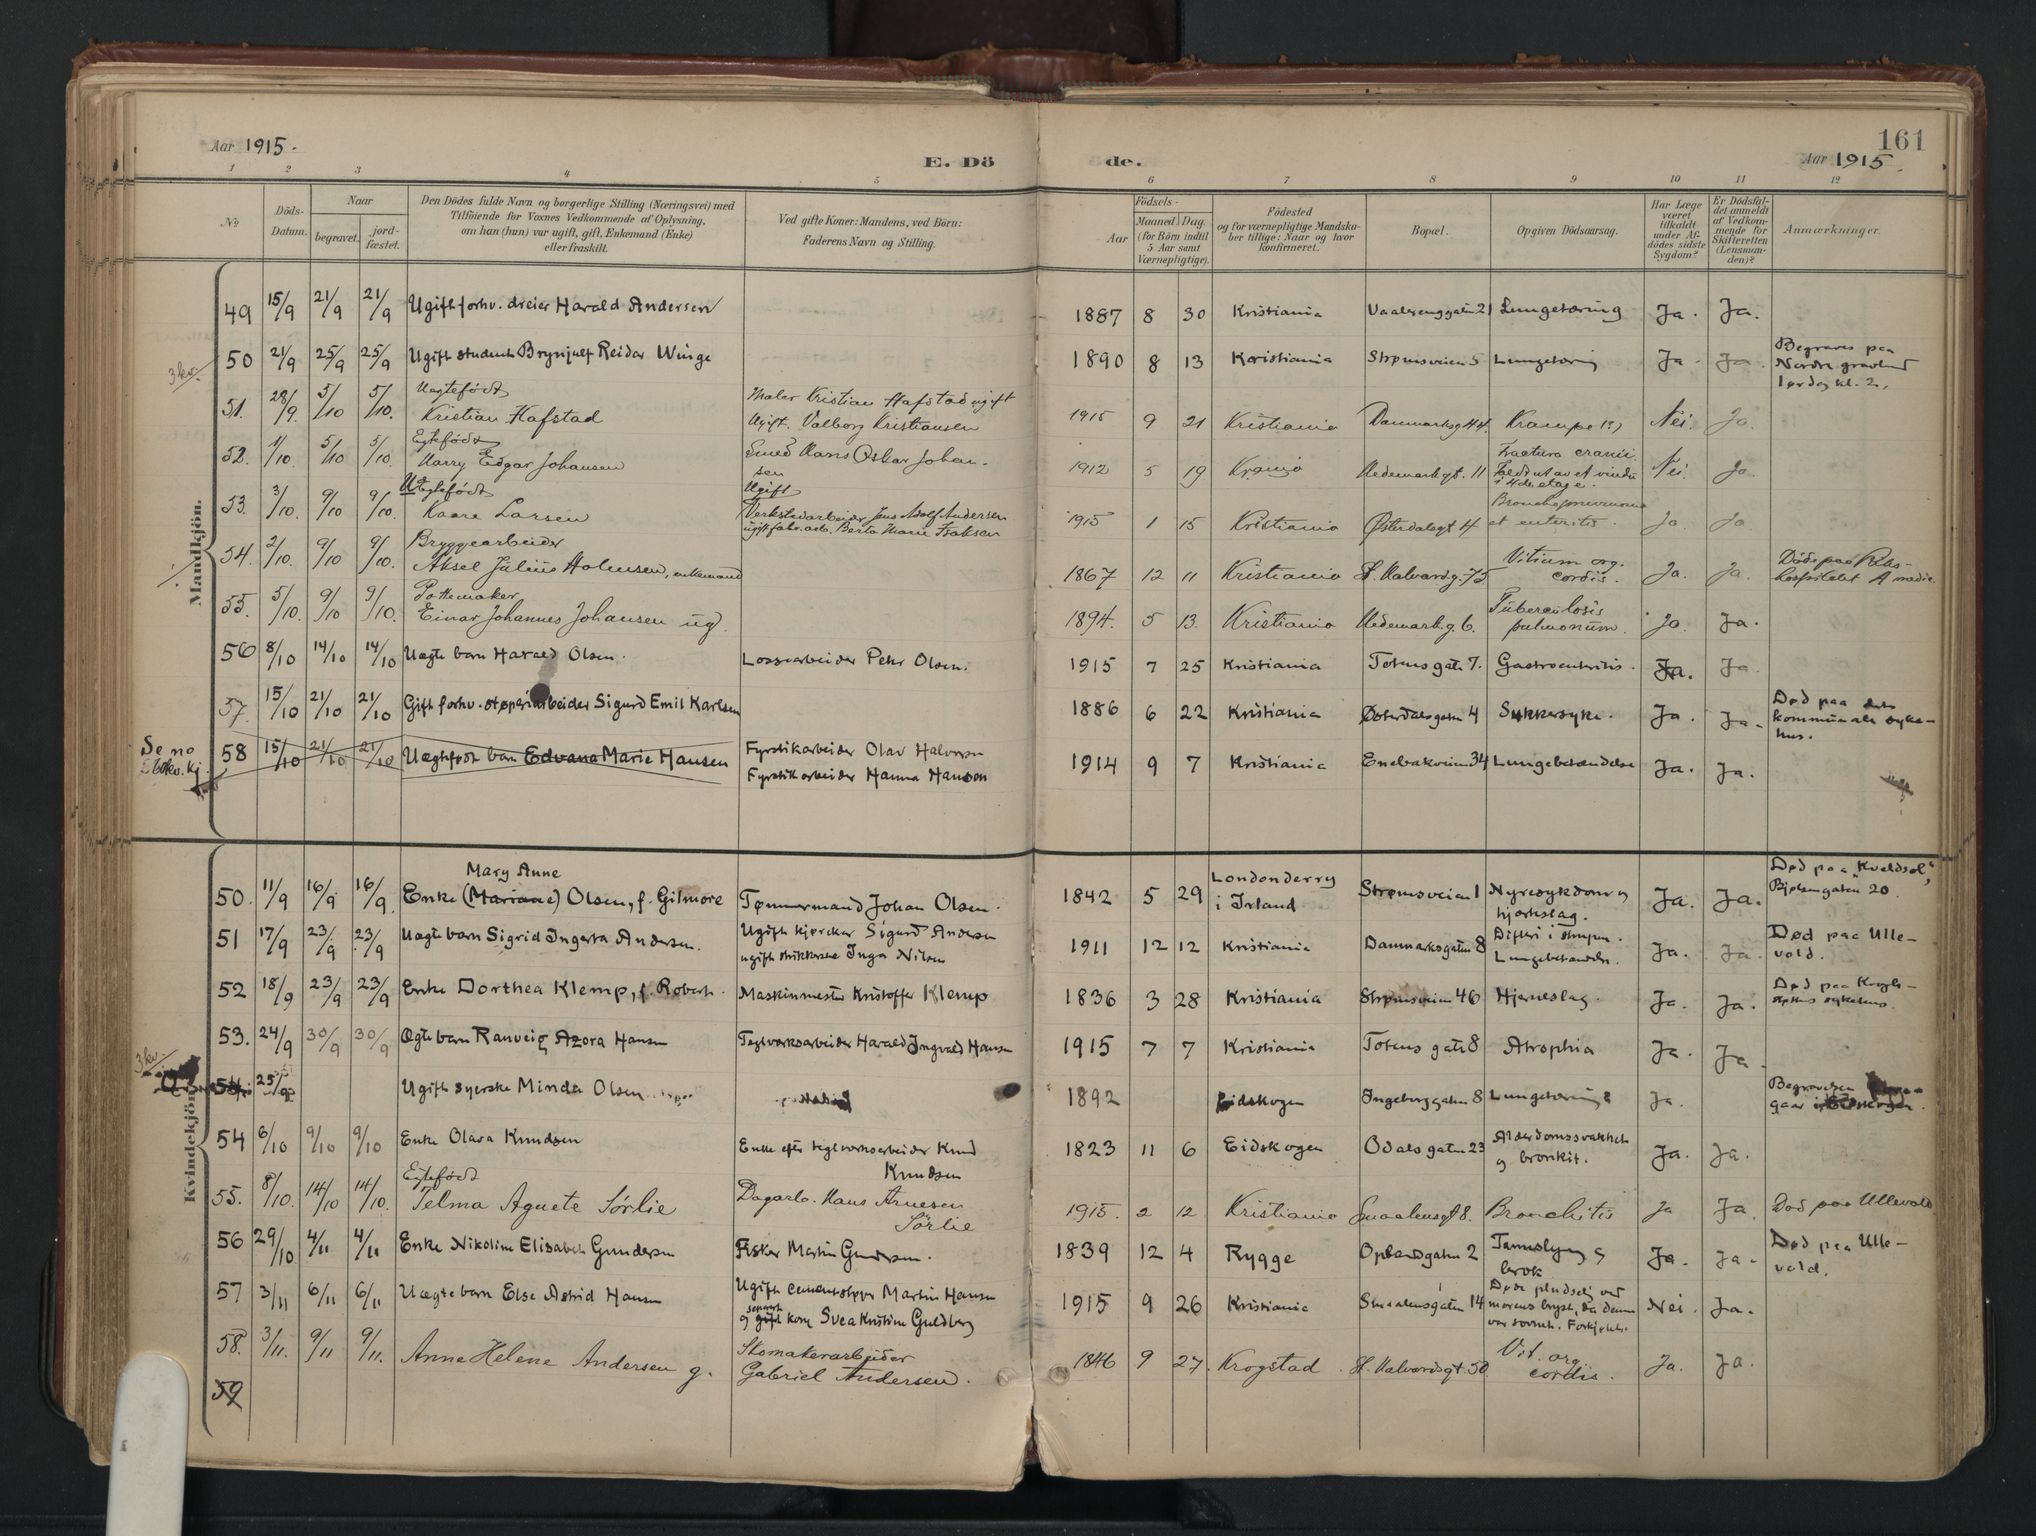 Aar 1915.
E. Dö
de.
161
Aar 1915.
1 2 3 4 5 6 7 8 9 10 11 12
No
Döds-Datum.
Naar
begravet.
jord-fæstet.
Den Dödes fulde Navn og borgerlige Stilling (Næringsvei) med
Tilföiende for Voxnes Vedkommende af Oplysning,
om han (hun) var ugift, gift, Enkemand (Enke)
eller fraskilt.
Ved gifte Koner: Mandens, ved Börn:
Faderens Navn og Stilling.
Födsels-
Aar
Maaned. Dag.
(for Börn indtil
5 Aar samt
Værnepligtige).
Födested
og for værnepligtige Mandska-
ber tillige: Naar og hvor
konfirmeret.
Bopæl.
Opgiven Dödsaarsag.
Har Læge
været
tilkaldt
under Af-
dödes sidste
Sygdom?
Er Dödsfal-
det anmeldt
af Vedkom-
mende for
Skifteretten
(Lensman-
den)?
Anmærkninger.
Mandkjön.
49 15/9 21/9 21/9 Ugift forhv. dreier Harald Andersen 1887 8 30 Kristiania Vaalerenggaten 21 Lungetæring Ja. Ja.
3 kv.
50 21/9 25/9 25/9 Ugift student Brynjulf Reidar Winge 1890 8 13 Kristiania Strømsveien 5 Lungetæring Ja. Ja. Begraves paa
Nordre gravlund
lørdag kl. 2.
51. 28/9 5/10 5/10. Uegtefödt
Kristian Hafstad Maler Kristian Hafstad ugift
Ugift. Valborg Kristiansen 1915 9 21 Kristiania Danmarksg 44. Krampe (?) Nei. Ja.
52. 1/10. 5/10 5/10. Egtefödt
Harry Edgar Johansen Smed Hans Oskar Johan-
sen 1912 5 19 Kr.ania Hedemarksgt. 11 Fractura cranii.
Faldt ut av et vindu
i 4de etage. Nei. Ja
53. 3/10. 9/10 9/10. Uegtefödt
Kaare Larsen Ugift
Verkstedarbeider Jens Adolf Andersen
ugift fabr.arb. Berta Marie Isaksen 1915 1 15 Kristiania Østerdalsgt 4 Bronchopneumonia
et enteritis. Ja Ja
54. 2/10. 9/10 9/10. Bryggearbeider
Aksel Julius Holmsen, enkemand 1867 12 11 Kristiania St. Halvardsg. 75 Vitium org.
cordis. Ja. Ja. Döde paa Riks-
hospitalet A medic.
55. 5/10. 9/10 9/10. Pottemaker
Einar Johannes Johansen ug. 1894. 5 13. Kristiania Hedemarksg. 6. Tüberculosis
pulmonum. Ja. Ja.
56 8/10 14/10 14/10 Uægte barn Harald Olsen. Lossearbeider Peter Olsen. 1915 7 25 Kristiania Totens gate 7. Gastroenteritis. Ja. Ja.
57. 15/10 21/10 21/10 Gift forhv. støperiarbeider Sigurd Emil Karlsen 1886 6 22 Kristiania Østerdalsgaten 4 Sukkersyke. Ja. Ja. Død paa det
kommunale syke-
hus.
Se no
60 kv. kj.
58 15/10 21/10 21/10 Uægtefødt barn Edvana Marie Hansen Fyrstikarbeider Olav Halvorsen
Fyrstikarbeider Hanna Hansen 1914 9 7 Kristiania Enebakveien 34 Lungebetændelse Ja. Ja.
Kvindekjön.
50. 11/9 16/9 16/9. Mary Anne
Enke (Mariane) Olsen, f. Gilmore Tømmermand Johan Olsen. 1842 5 29 Londonderry
i Irland Strømsveien 1 Nyresykdom og
hjerteslag. Ja. Ja. Død paa "Kveldsol",
20.
51 17/9 23/9 23/9 Uægte barn Sigrid Ingerta Andersen. Ugift kjørekar Sigurd Andersen
ugift Inga Nilsen 1911 12 12 Kristiania Danmarksgaten 8 Difteri i strupen.
Lungebetændelse. Ja. Ja. Død paa Ulle-
vold.
52 18/9 23/9 23/9 Enke Dorthea Klemp, f. Robert. Maskinmester Kristoffer Klemp 1836 3 28 Kristiania Strømsveien 46 Hjerneslag. Ja. Ja. Død paa Krogh-
støtens sykehus.
53. 24/9 30/9 30/9 Ægte barn Ranveig Azora Hansen Teglverksarbeider Harald Ingvald Hansen 1915 7 7 Kristiania Totens gate 8 Atrophia Ja. Ja.
3 kv.
54. 25/9 Ugift syerske Minda Olsen 1892 Eidskogen Ingeborggaten 8 Lungetæring Ja. Begravelsen
gaar i Eidskogen.
54 6/10 9/10 9/10 Enke Olava Knudsen Enke efter teglverksarbeider Knud
Knudsen 1823 11 6 Eidskogen Odalsgaten 23 Alderdomssvakhet
og bronkit. Ja. Ja.
55. 8/10. 14/10 14/10. Egtefödt
Telma Agnete Sörlie Dagarb. Hans Arnesen
Sörlie 1915. 2 12 Kristiania Smaalensgt 8. Bronchitis Ja Ja. Död paa Ullevold
56 29/10 4/11 4/11 Enke Nikoline Elisabeth Gundersen Fisker Martin Gundersen. 1839 12 4 Rygge Oplandsgaten 2 Tarmslyng og
brok Ja. Ja. Død paa Ulle-
vold.
57 3/11 6/11 6/11 Uægte barn Else Astrid Hansen Ugift cementstøper Martin Hansen
og separert gift kone Svea Kristine Guldberg 1915 9 26 Kristiania Smaalensgaten 14 Døde pludselig ved
morens bryst, da denne
var sovnet. Nei. Ja.
58. 3/11. 9/11 9/11. Anne Helene Andersen g. Skomakerarbeider
Gabriel Andersen. 1846 9 27. Krogstad St. Halvardsgt. 50 Vit. org.
cordis. Ja. Ja.
59